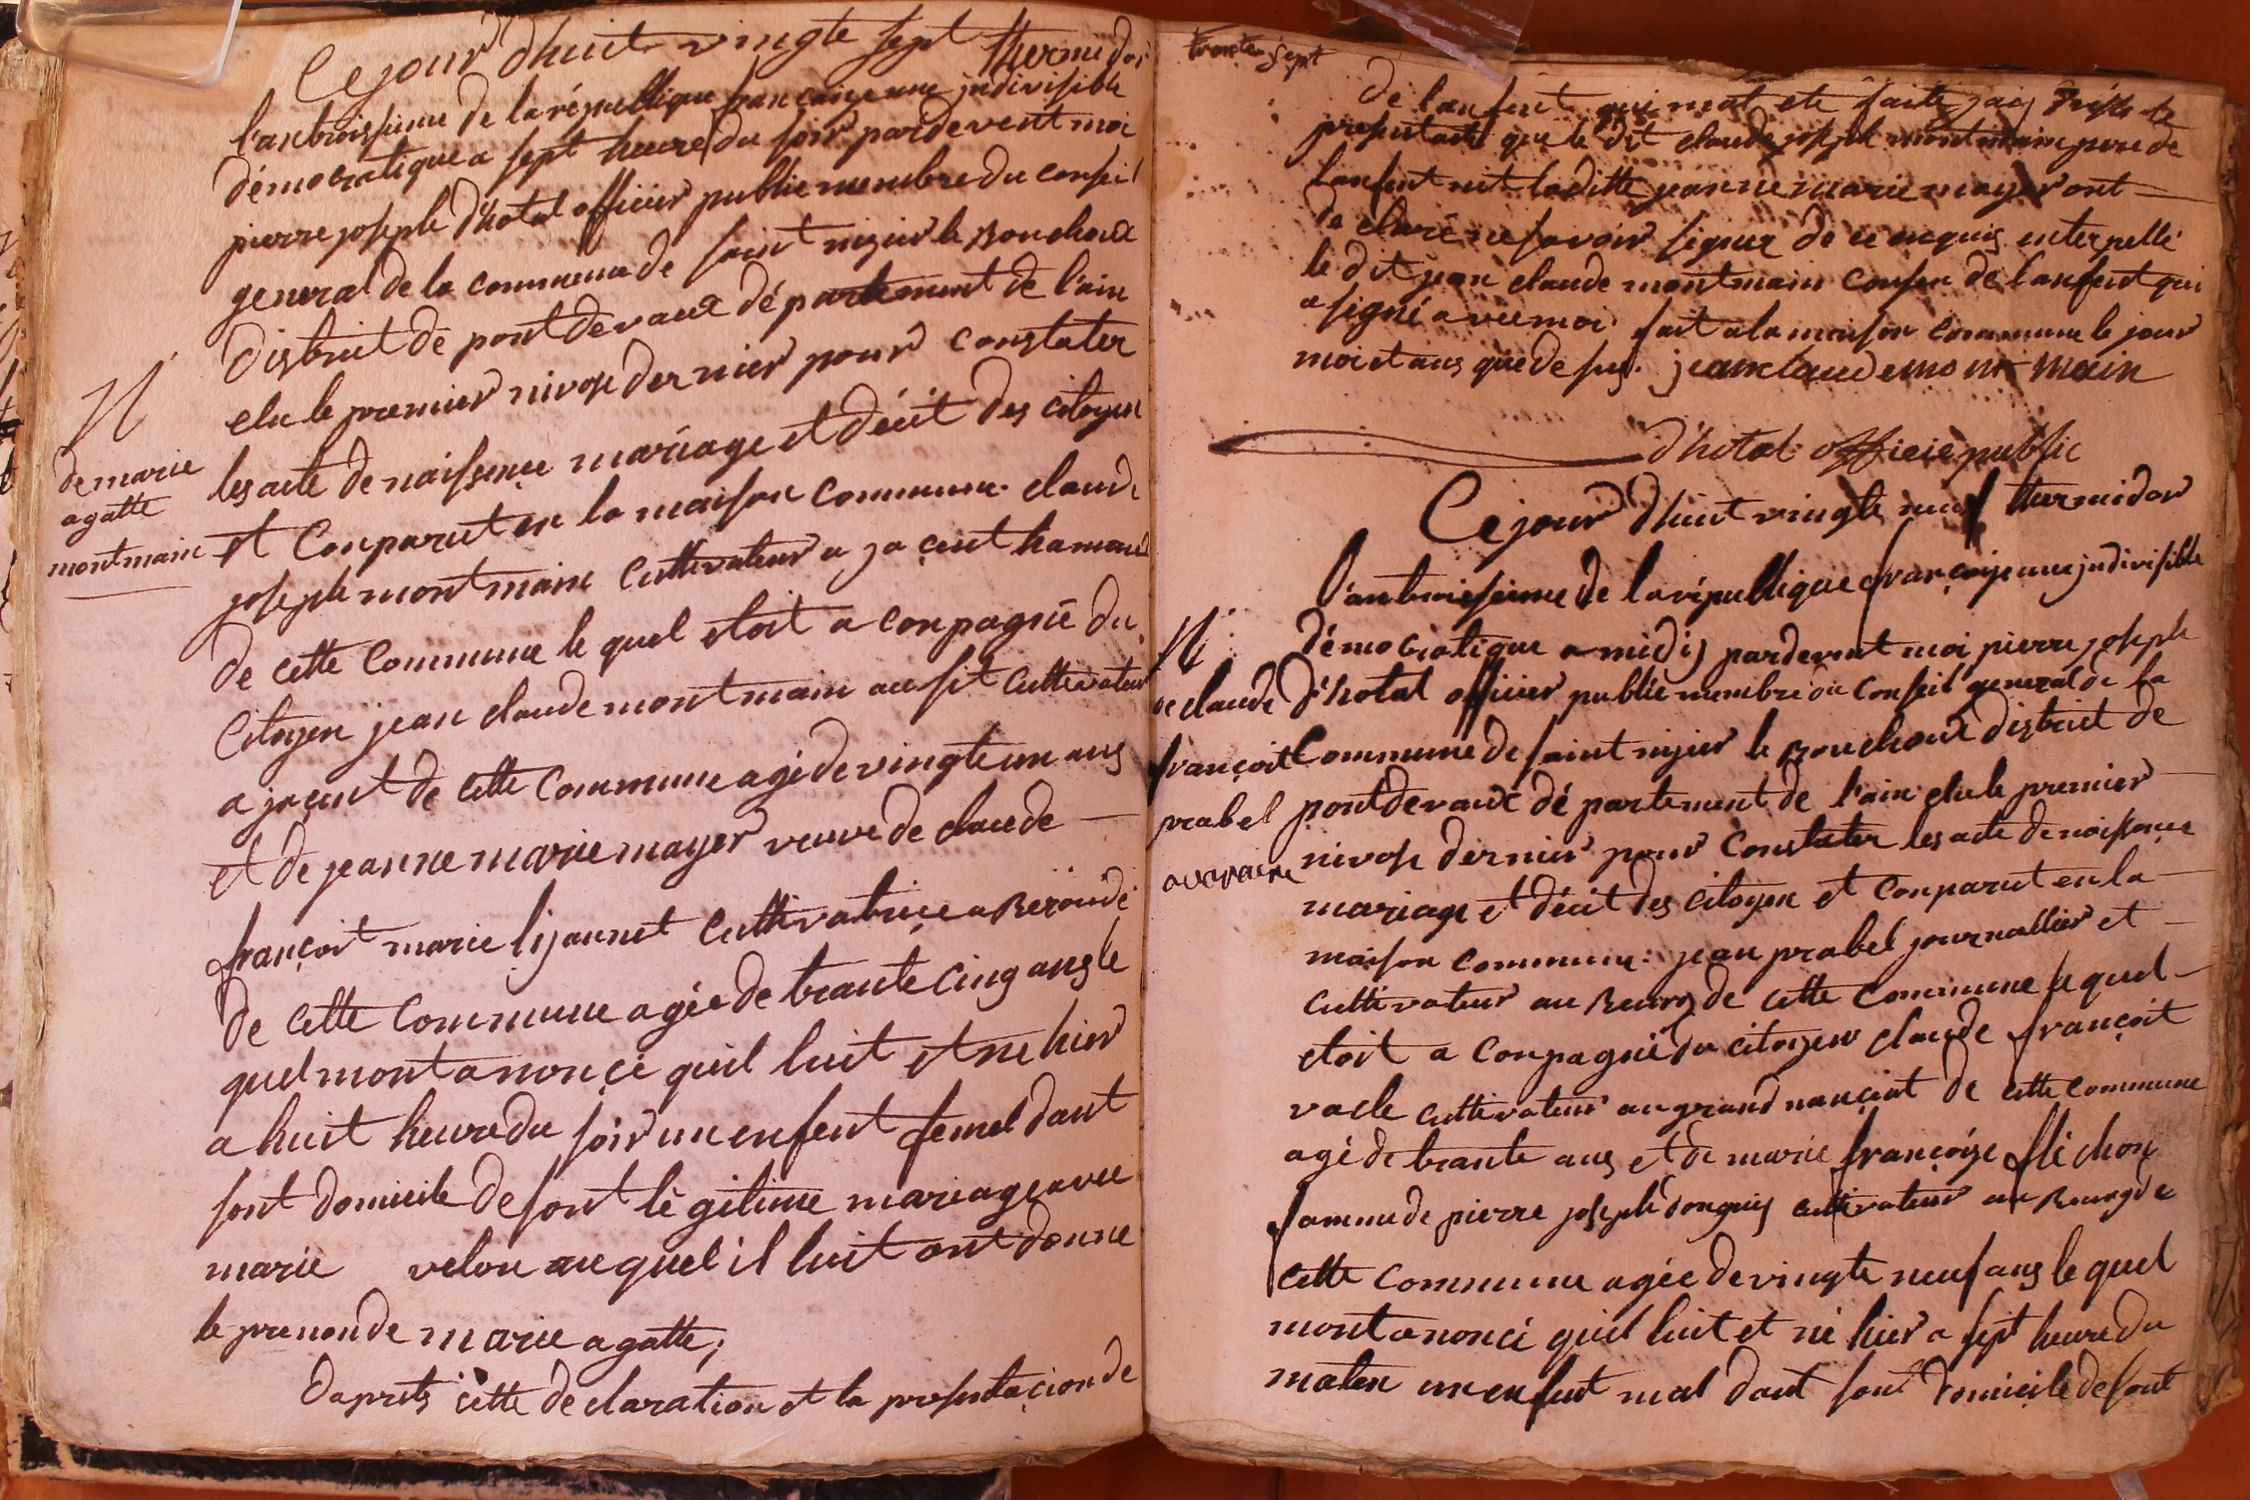 Ce jour dhuit vingte sept thermidor
l'an troissieme de la république françaije une jndivisible
démocratique a sept heure du soir pardevent moi
pierre joseph d'hotal officier public membre du conseil
general de la commune de saint nizier le Bouchoux
district de pont devaux département de l'ain
elu le premier nivose dernier pour constater
les acte de naissence mariage et décit des citoyen
et Conparut en la maison commune claude
joseph montmain cultivateur a
de cette Commune le quel etoit a conpagnié du
Citoyen jean claude montmain ausit cultivateur
a jacent de cette Commune agé de vingte un ans
et de jeanne marie mayer veuve de claude
françoit marie lijannet cultivatrice a
de cette Commune agée de trante cinq ans le
quel mont anoncé quil luit et né hier
a huit heure du soir un enfent femel dant
sont domicile de sont légitime mariage avec
marie velon auquel il luit ont donne
le prenon de marie agatte;
Daprets cette declaration et la presentacion de
N
de marie
agatte
montmain
trante sept
de lanfent qui mat eté faite jai
presentate que le dit claude joseph montmain pere de
lanfent nit laditte jeanne marie mayer ont
de claré ne savoir signer de ce enquis enterpellé
le dit jean claude montmain consen de lanfent qui
a signé avec moi fait a la maison commune le jour
moi et ans que de sus. jean claude mont main
d'hotal officié public
Ce jour dhuit vingte neuf thermidor
l'an troissieme de la république françaije une jndivisible
démocratique a midi, pardevent moi pierre joseph
d'hotal officier public membre du conseil general de la
Commune de saint nizier le Bouchoux district de
pont devaux département de l'ain elu le premier
nivose dernier pour constater les acte de naissance
mariage et décit des citoyen et conparut en la
maison commune: jean prabel journallier et
cultivateur au Bourg de cette commune le quel
etoit a conpagnié du citoyen claude françoit
vacle cultivateur au grand nanciat de cette commune
agé de trante ans et de marie françoise flichon
famme de pierre joseph donguis cultivateur au Bourg de
cette commune agée de vingte neuf ans le quel
mont anoncé quil luit et né hier a sept heure du
maten un enfent mal dant sont domicile de sont
N
de claude
françoit
prabel